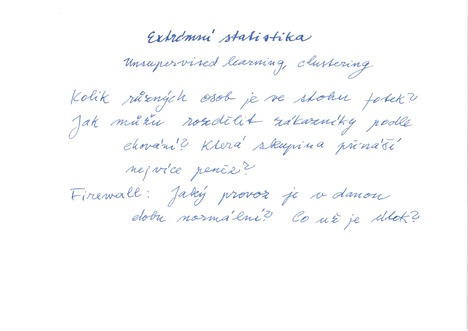 Extrémní statistika
Unsupervised learning, clustering
Kolik různých osob je ve stohu fotek?
Jak můžu rozdělit zákazníky podle
chování? Která skupina přináší
nejvíce peněz?
Firewall: Jaký provoz je v danou
dobu normální? Co už je útok?